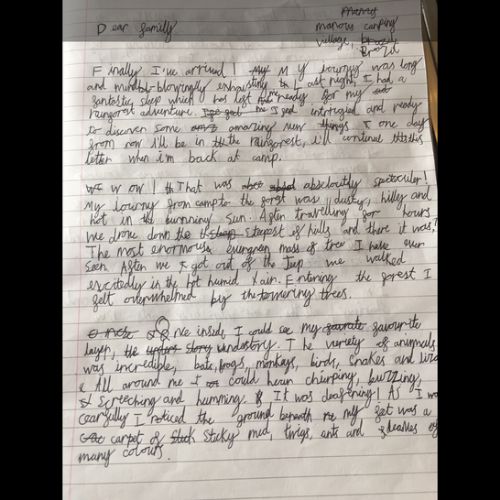 manous camping
Dear familly
village, Brazil
Finally I've arrived! My journy was long
and mindblowingly exhausting. Last night, I had a
fantastic sleep which has left me ready for my
rainforest adventure. I feel intregied and ready
to discover some amazing new things. one day
from now i'll be in the rainforest, i'll continue this
letter when i'm back at camp.
Wow! That was absoloutly spectacular!
My journy from camp to the forest was dusty, hilly and
hot in the burnning sun. After travelling for hours
we drove down the steepest of hills and there it was!
The most enormous evergreen mass of tree I have ever
seen. After we got out of the Jeep we walked
excitedly in the hot humid rain. Entering the forest I
felt overwhelmed by the towering trees.
Once inside I could see my favourite
layer, the understory. The variety of anymals
was incredible, bats, frogs, monkeys, birds, snakes and
All around me I could hear chirping, buzzing,
screeching and humming. It was deafening! As I
carefully I noticed the ground beneath my feet was a
carpet of sticky mud, twigs, ants and leaves of
many colours.